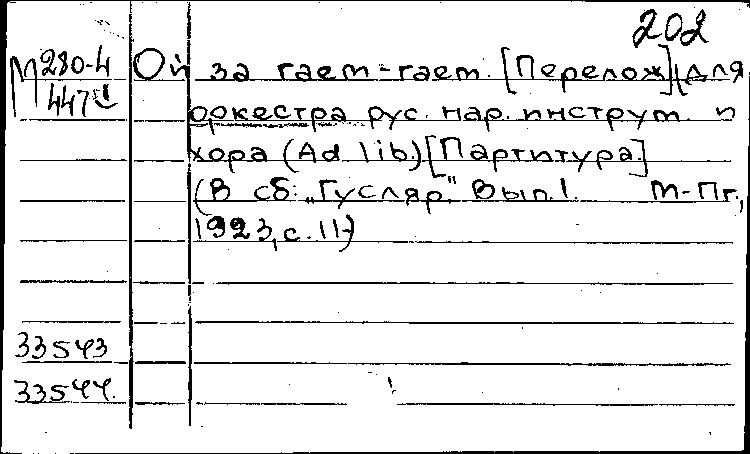 202
М 280-4
447
Ой за гаем-гаем. [Перелож] (для
оркестра рус. нар. инструм. и
хора (Ad lib.) [Партитура.]
(В сб: „Гусляр." Вып. I. М-Пг.,
1923, с. 11-)
33543
33544.